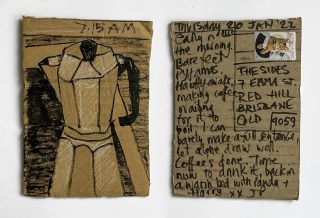 7.15 AM
THURSDAY 20 JAN '22
Early in
the morning.
Bare feet
pyjamas.
Hardly awake
making coffee
waiting
for it to
boil. I can
barely make a full sentence
let alone draw well.
Coffee's done. Time
now to drink it, back in
a warm bed with panda +
Harry xx JP
THE SIDES
7 EMMA ST
RED HILL
BRISBANE
QLD 4059